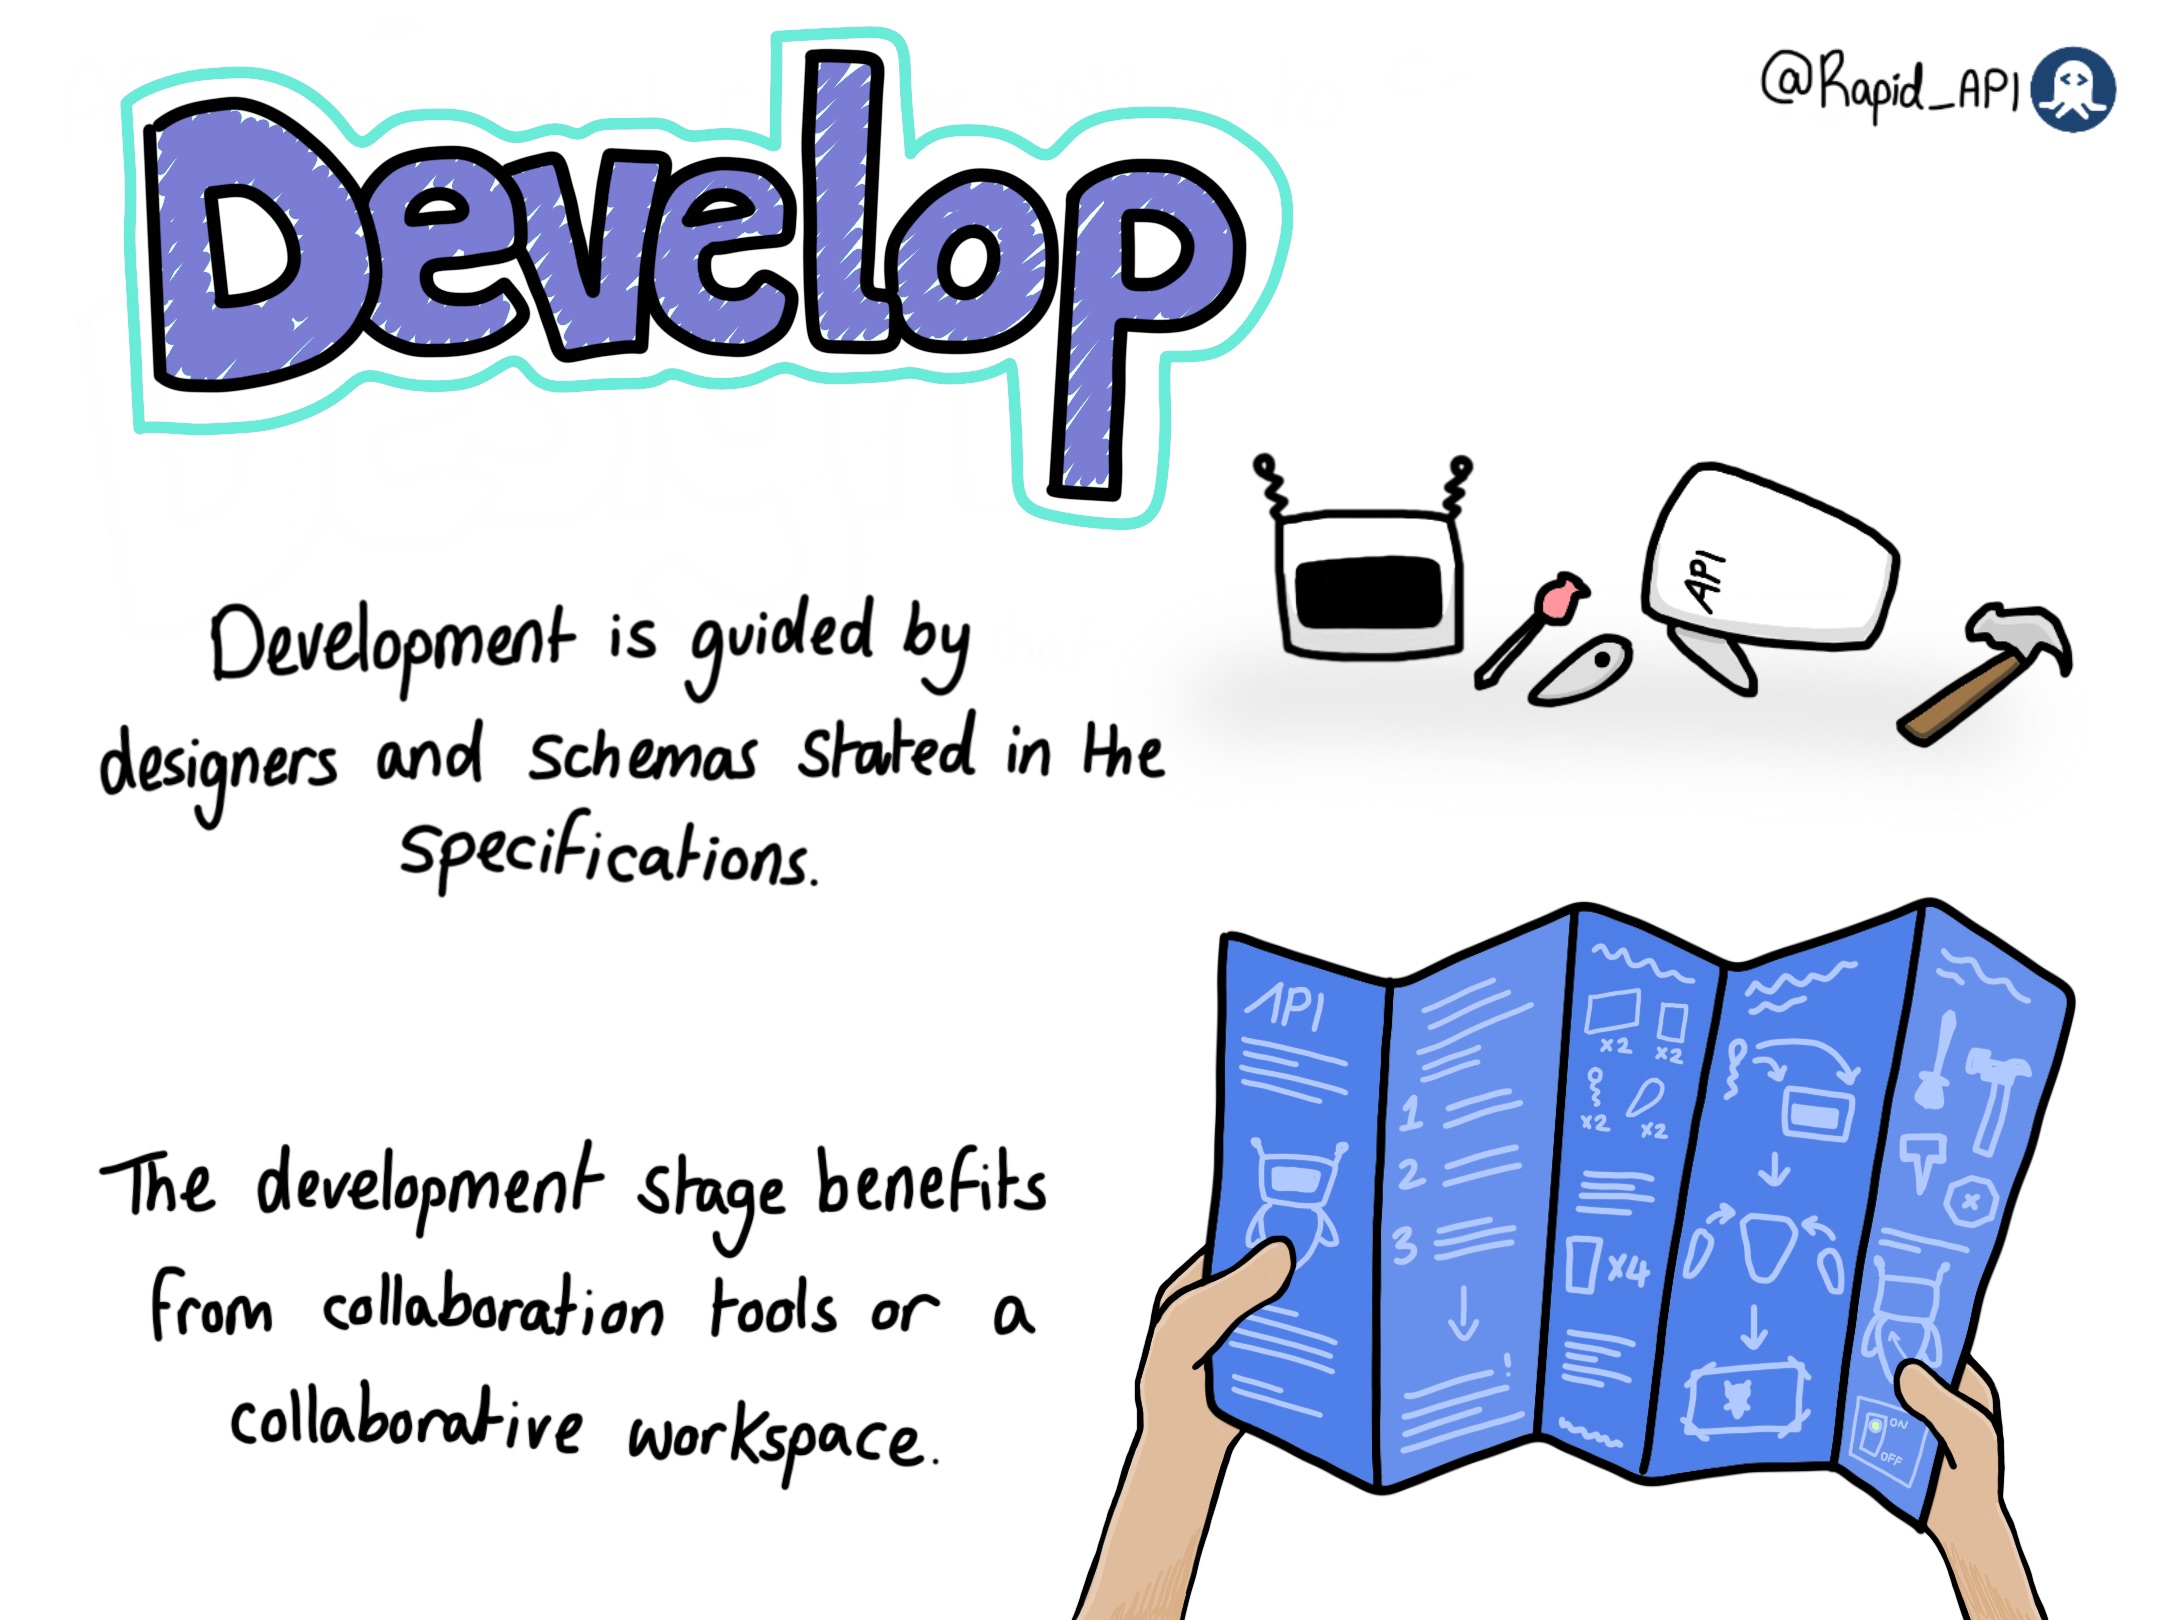 Develop
@Rapid_API
Development is guided by
designers and schemas stated in the
specifications.
API
The development stage benefits
from collaboration tools or a
collaborative workspace.
API
1
2
3
!
x2 x2
x2 x2
x4
ON
OFF